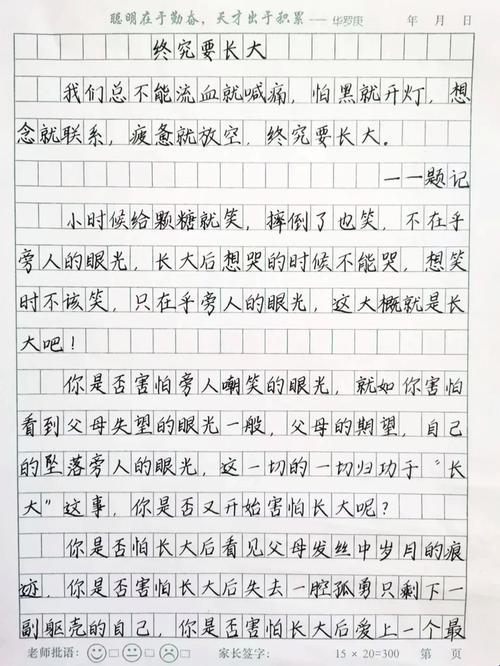 聪明在于勤奋，天才出于积累——华罗庚 年 月 日
终究要长大
我们总不能流血就喊痛，怕黑就开灯，想
念就联系，疲惫就放空，终究要长大。
——题记
小时候给颗糖就笑，摔倒了也笑，不在乎
旁人的眼光，长大后想哭的时候不能哭，想笑
时不该笑，只在乎旁人的眼光，这大概就是长
大吧！
你是否害怕旁人嘲笑的眼光，就如你害怕
看到父母失望的眼光一般，父母的期望，自己
的坠落旁人的眼光，这一切的一切归功于“长
大”这事，你是否又开始害怕长大呢？
你是否怕长大后看见父母发丝中岁月的痕
迹，你是否害怕长大后失去一腔孤勇只剩下一
副躯壳的自己，你是否害怕长大后爱上一个最
老师批语： 家长签字： 15×20=300 第 页